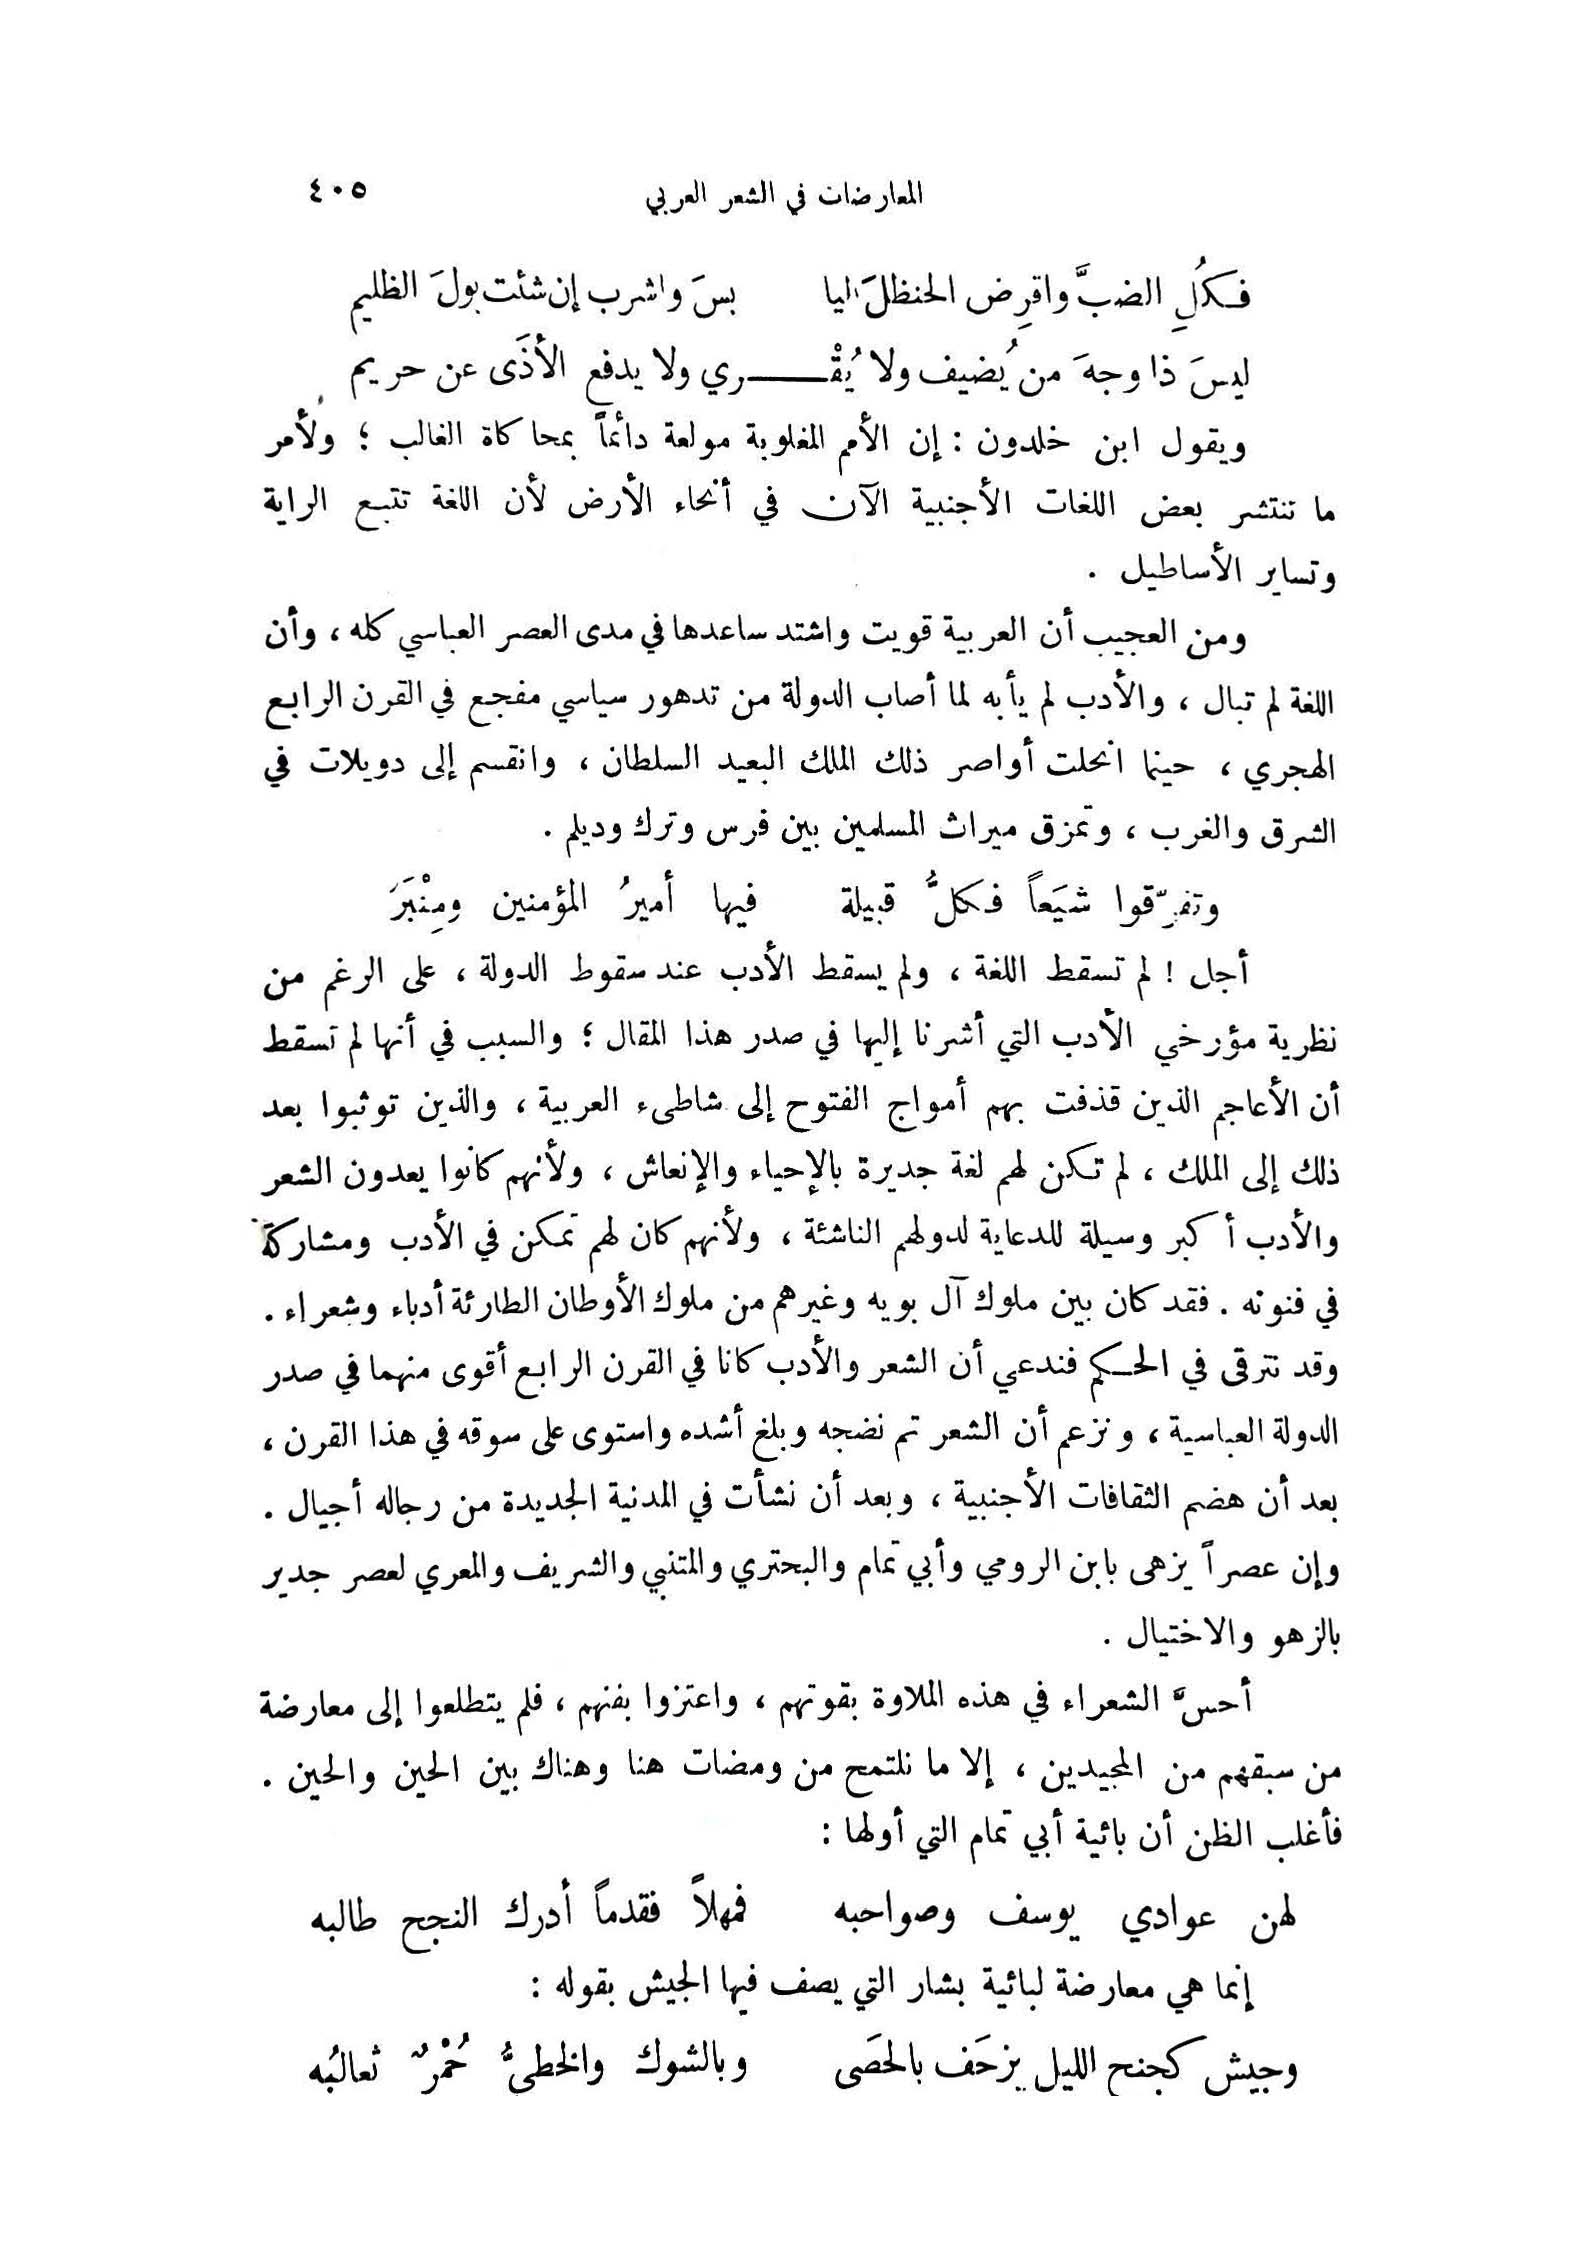 المعارضات في الشعر العربي ٤٠٥
فكُلِ الضبَّ واقرِض الحنظلَ اليا بسَ واشرب إن شئت بولَ الظليم
ليسَ ذا وجهَ من يُضيف ولا يُقْري ولا يدفع الأذَى عن حريم
ويقول ابن خلدون : إن الأمم المغلوبة مولعة دائماً بمحاكاة الغالب ؛ ولأمر
ما تنتشر بعض اللغات الأجنبية الآن في أنحاء الأرض لأن اللغة تتبع الراية
وتساير الأساطيل .
ومن العجيب أن العربية قويت واشتد ساعدها في مدى العصر العباسي كله ، وأن
اللغة لم تبال ، والأدب لم يأبه لما أصاب الدولة من تدهور سياسي مفجع في القرن الرابع
الهجري ، حينما انحلت أواصر ذلك الملك البعيد السلطان ، وانقسم إلى دويلات في
الشرق والغرب ، وتمزق ميراث المسلمين بين فرس وترك وديلم .
وتفرّقوا شيَعاً فكلُّ قبيلة فيها أميرُ المؤمنين ومِنْبَرَ
أجل ! لم تسقط اللغة ، ولم يسقط الأدب عند سقوط الدولة ، على الرغم من
نظرية مؤرخي الأدب التي أشرنا إليها في صدر هذا المقال ؛ والسبب في أنها لم تسقط
أن الأعاجم الذين قذفت بهم أمواج الفتوح إلى شاطىء العربية ، والذين توثبوا بعد
ذلك إلى الملك ، لم تكن لهم لغة جديرة بالإحياء والإنعاش ، ولأنهم كانوا يعدون الشعر
والأدب أكبر وسيلة للدعاية لدولهم الناشئة ، ولأنهم كان لهم تمكن في الأدب ومشاركة
في فنونه . فقد كان بين ملوك آل بويه وغيرهم من ملوك الأوطان الطارئة أدباء وشعراء .
وقد نترقى في الحكم فندعي أن الشعر والأدب كانا في القرن الرابع أقوى منهما في صدر
الدولة العباسية ، ونزعم أن الشعر تم نضجه وبلغ أشده واستوى على سوقه في هذا القرن ،
بعد أن هضم الثقافات الأجنبية ، وبعد أن نشأت في المدنية الجديدة من رجاله أجيال .
وإن عصراً يزهى بابن الرومي وأبي تمام والبحتري والمتنبي والشريف والمعري لعصر جدير
بالزهو والاختيال .
أحسَّ الشعراء في هذه الملاوة بقوتهم ، واعتزوا بفنهم ، فلم يتطلعوا إلى معارضة
من سبقهم من المجيدين ، إلا ما نلتمح من ومضات هنا وهناك بين الحين والحين .
فأغلب الظن أن بائية أبي تمام التي أولها :
لهن عوادي يوسف وصواحبه فمهلاً فقدماً أدرك النجح طالبه
إنما هي معارضة لبائية بشار التي يصف فيها الجيش بقوله :
وجيش كجنح الليل يزحَف بالحصَى وبالشوك والخطيُّ حُمْرٌ ثعالبُه